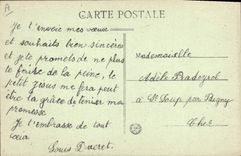 CARTE POSTALE
Je t'envoie mes vœux
et souhaits bien sincères
et je te promets de ne plus
te faire de la peine, le
petit Jésus me fera peut
être la grâce de tenir ma
promesse
Je t'embrasse de tout
cœur
Louis
Mademoiselle
Adèle
à St Loup par
Cher